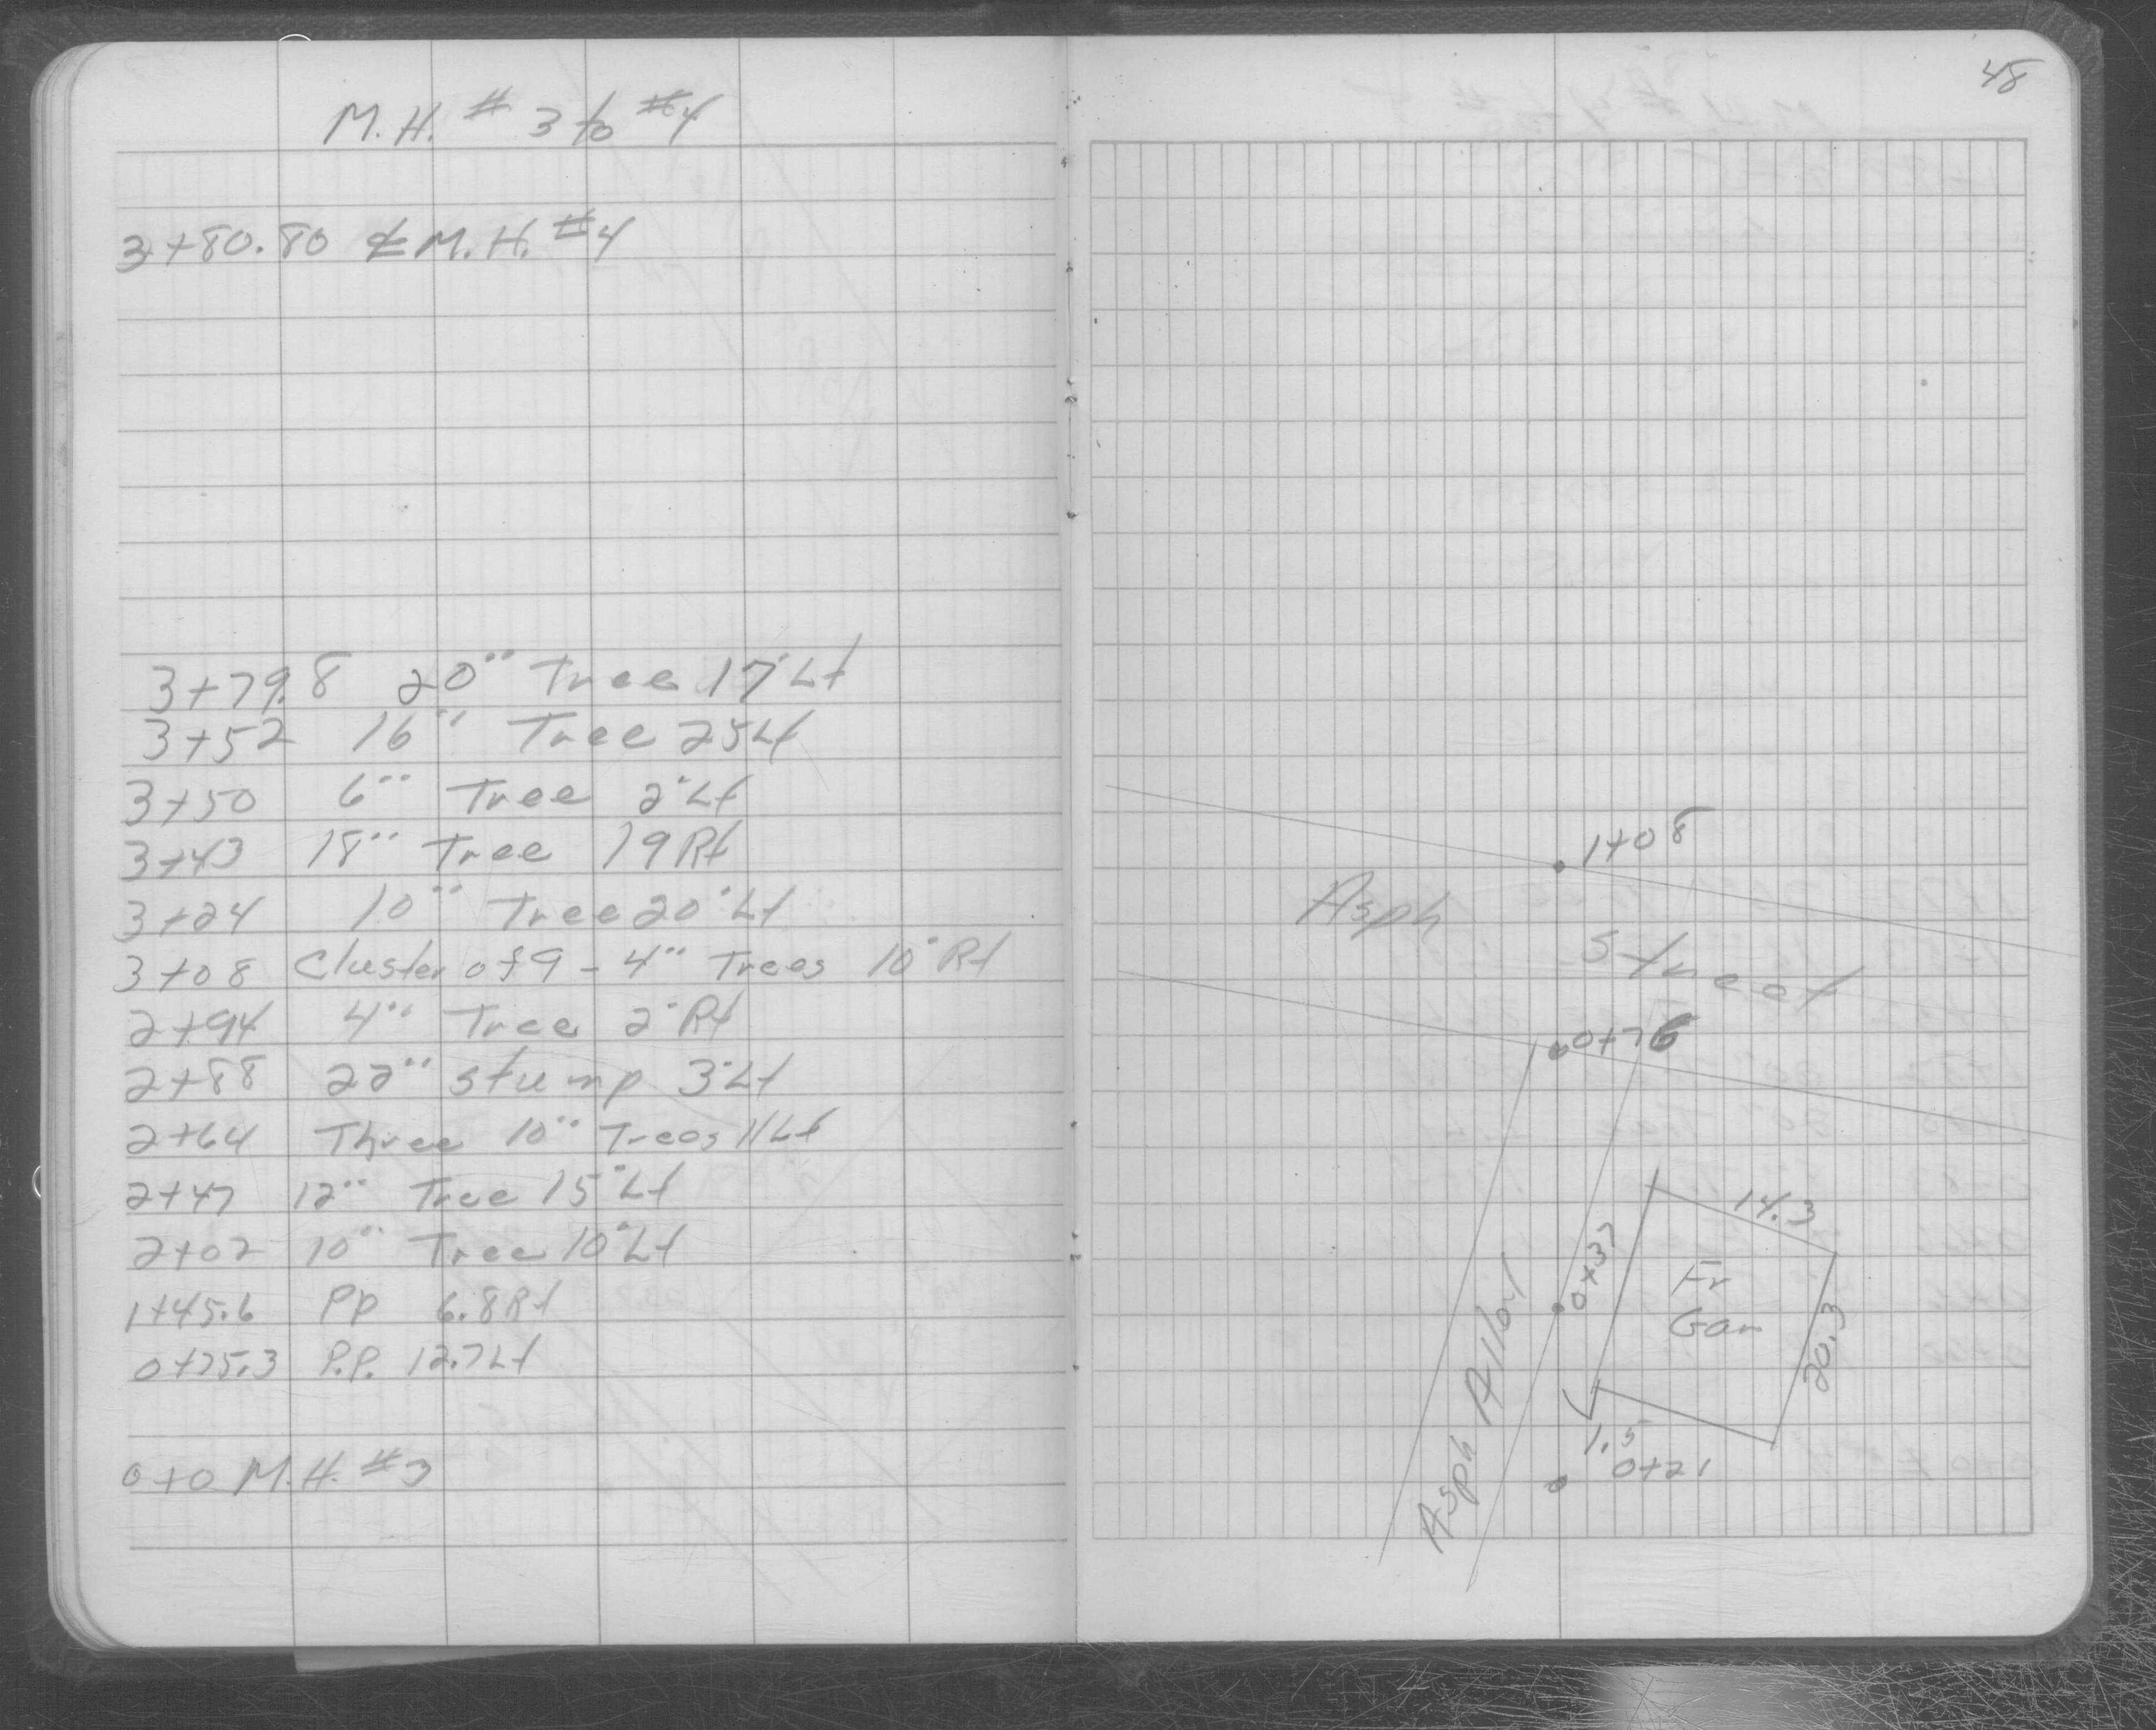 M.H. # 3 to #4
3+80.80 ℄ M.H. #4
3+79.8 20" Tree 17' Lt
3+52 16" Tree 25 Lt
3+50 6" Tree 2' Lt
3+43 18" Tree 19 Rt
3+24 10" Tree 20' Lt
3+08 Cluster of 9 - 4" Trees 10' Rt
2+94 4" Tree 2' Rt
2+88 22" stump 3' Lt
2+64 Three 10" Trees 11 Lt
2+47 12" Tree 15' Lt
2+02 10" Tree 10' Lt
1+45.6 PP 6.8 Rt
0+75.3 P.P. 12.7 Lt
0+0 M.H. #3
48
1+08
Asph
Street
0+76
14.3
0+37
Fr
Gar
20.3
Asph Alley
1.5
0+21